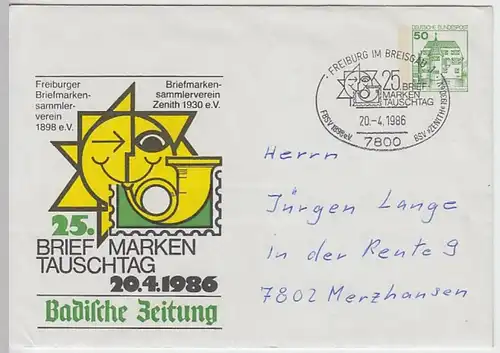 Freiburger
Briefmarken-
sammler-
verein
1898 e.V.
Briefmarken-
sammlerverein
Zenith 1930 e.V.
25.
BRIEF MARKEN
TAUSCHTAG
20.4.1986
Badische Zeitung
FREIBURG IM BREISGAU
25. BRIEF
MARKEN
TAUSCHTAG
20.-4.1986
FBSV 1898 e.V.
BSV »ZENITH« 1930 e.V.
7800
DEUTSCHE BUNDESPOST
50
Herrn
Jürgen Lange
In der Rente 9
7802 Merzhausen